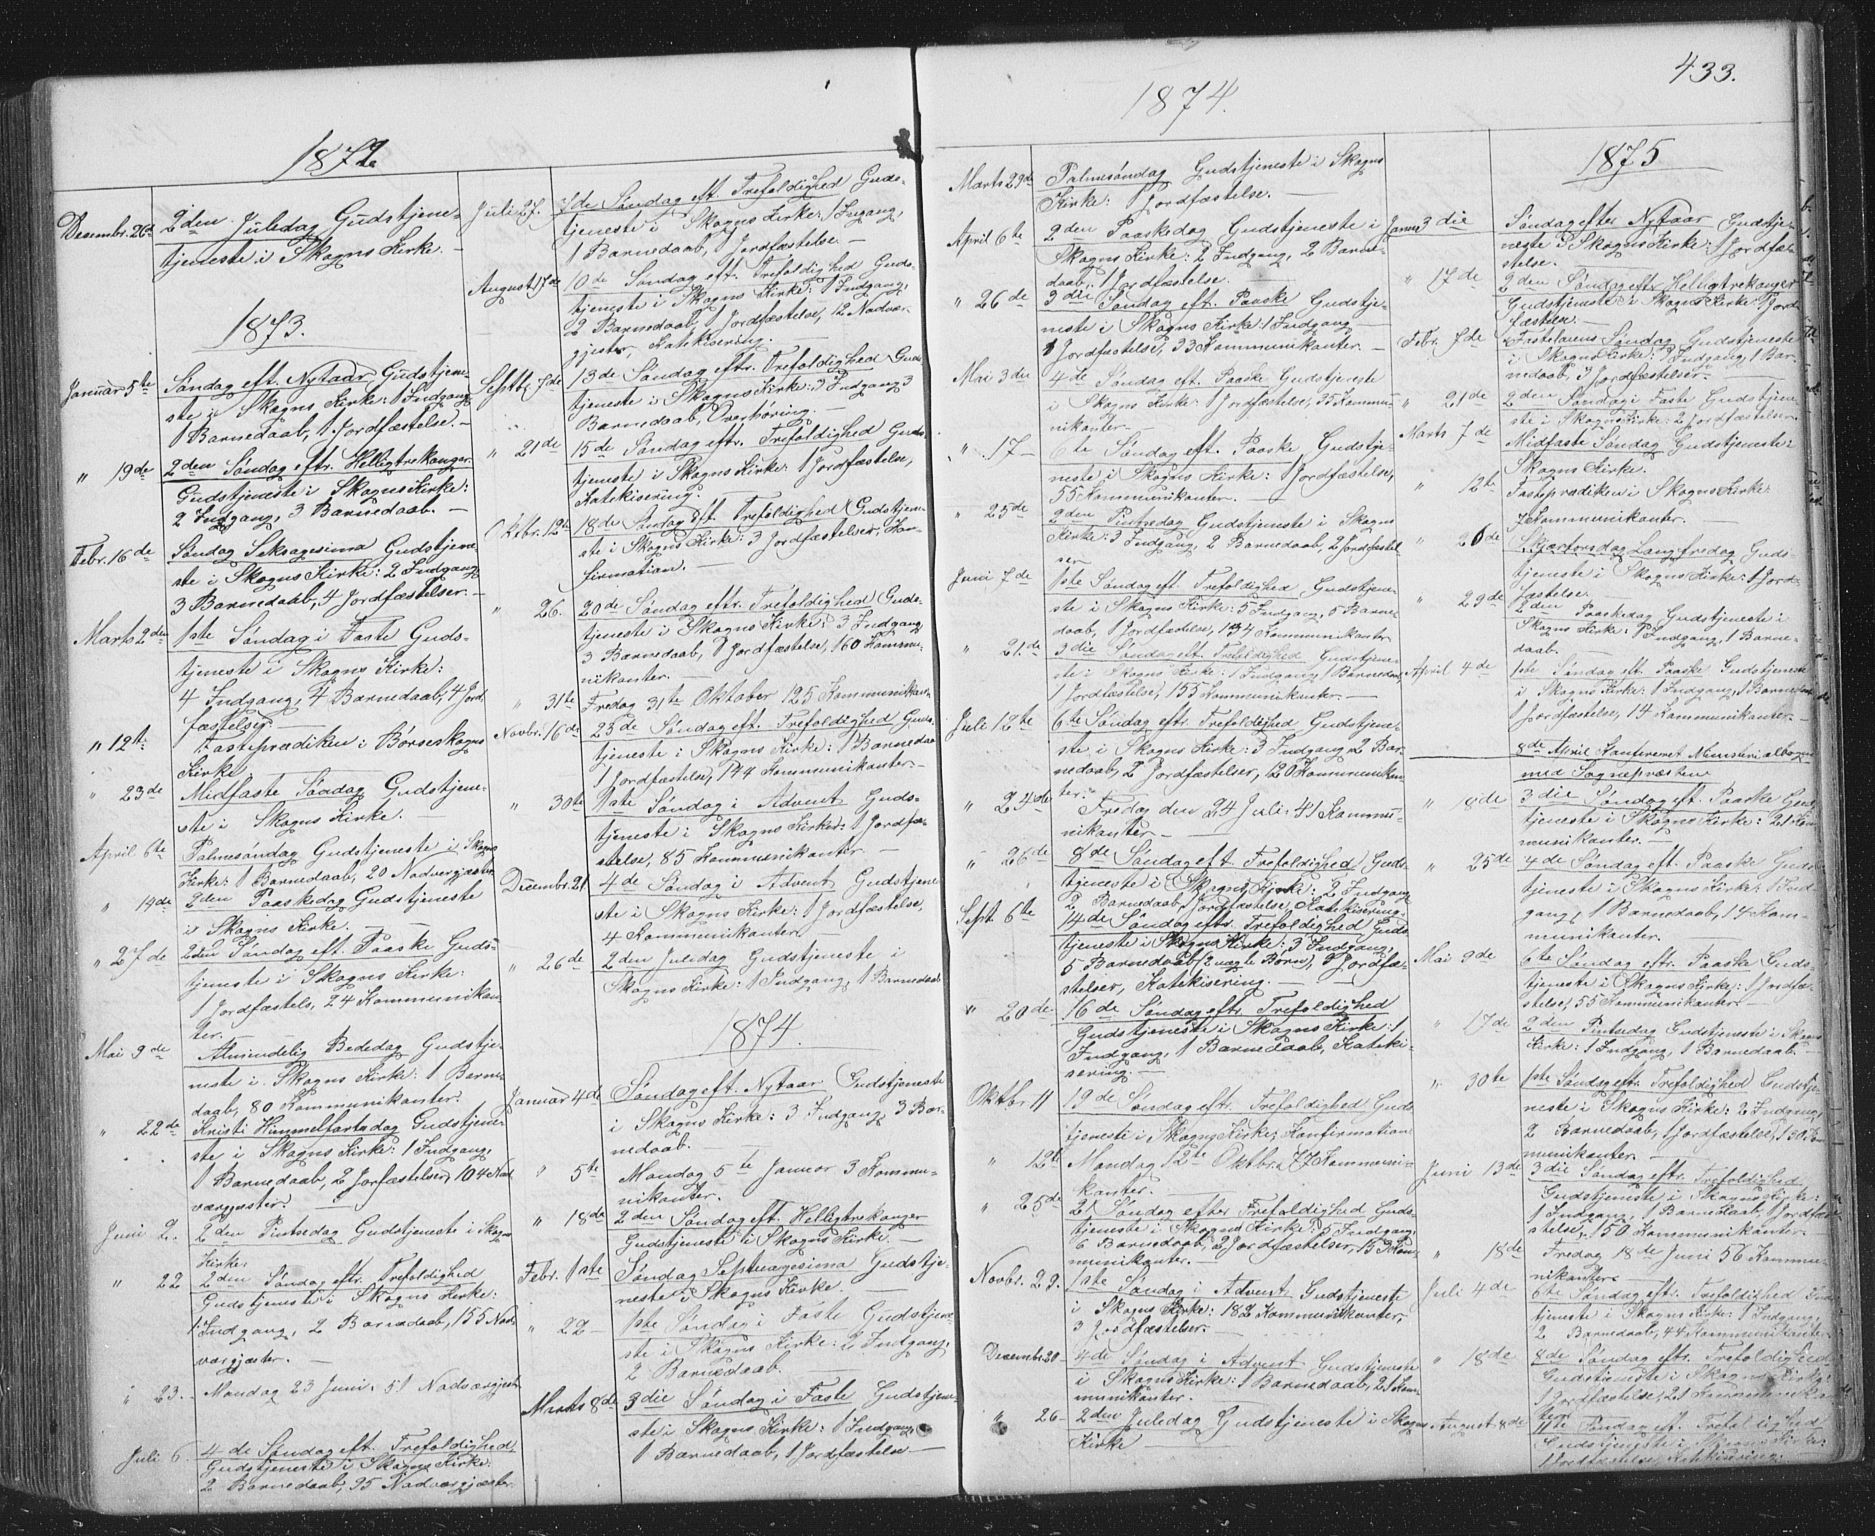 1872
Desembr. 26de 2den Juledag Gudstjene-
tjeneste i Skogns Kirke.
1873.
Januar 5te Søndag eft. Nytaar Gudstjene-
ste i Skogns Kirke: 1 Indgang,
1 Barnedaab, 1 Jordfæstelse.
" 19de 2den Søndag eftr. Helligtrekonger
Gudstjeneste i Skogns Kirke:
2 Indgang, 3 Barnedaab.
Febr. 16de Søndag Seksagesima Gudstjene-
ste i Skogns Kirke: 2 Indgang,
3 Barnedaab, 4 Jordfæstelser.
Marts 2den 1ste Søndag i Faste Guds-
tjeneste i Skogns Kirke:
4 Indgang, 4 Barnedaab, 4 Jord-
fæstelser
" 12te Fasteprædiken i Børseskogns
Kirke
" 23de Midfaste Søndag Gudstjene-
ste i Skogns Kirke.
April 6te Palmesøndag Gudstjeneste i Skogns
Kirke: 1 Barnedaab, 20 Nadvergjæster
" 14de 2den Paaskedag Gudstjeneste
i Skogns Kirke.
" 27de 2den Søndag eft. Paaske Guds-
tjeneste i Skogns Kirke:
1 Jordfæstels, 24 Kommunikan-
ter.
Mai 9de Almindelig Bededag Gudstje-
neste i Skogns Kirke: 1 Barne-
daab, 80 Kommunikanter.
" 22de Kristi Himmelfartsdag Gudstjene-
ste i Skogns Kirke: 1 Indgang,
1 Barnedaab, 2 Jorfæstelser, 104 Nad-
værgjester.
Juni 2. 2den Pintsedag Gudstjeneste i Skogns
Kirke.
" 22 2den Søndag eftr. Trefoldighed
Gudstjeneste i Skogns Kirke:
1 Indgang, 2 Barnedaab, 155 Nad-
værgjæster.
" 23. Mandag 23 Juni: 51 Nadværgjest
Juli 6. 4de Søndag eft. Trefoldighed
Gudstjeneste i Skogns Kirke:
2 Barnedaab, 95 Nadværgjæster
Juli 27. 7de Søndag eft. Trefoldighed Guds-
tjeneste i Skogns Kirke: 1 Indgang,
1 Barnedaab, 1 Jordfæstelse.
August 17de 10de Søndag eft. Trefoldighed Guds-
tjeneste i Skogns Kirke: 1 Indgang,
2 Barnedaab, 1 Jordfæstelse, 12 Nadvær-
gjester, Katekisering.
Septb. 7de 13de Søndag eftr. Trefoldighed Guds-
tjeneste i Skogns Kirke: 3 Indgang, 3
Barnedaab, Overhøring.
" 21de 15de Søndag eftr. Trefoldighed Guds-
tjeneste i Skogns Kirke: 1 Jordfæstelse,
Katekisering.
Oktbr. 12te 18de Søndag eft. Trefoldighed Gudstjene-
ste i Skogns Kirke: 3 Jordfæstelser, Kon-
firmation.
" 26. 20de Søndag eftr. Trefoldighed Guds-
tjeneste i Skogns Kirke: 3 Indgang
3 Barnedaab, 1 Jordfæstelse, 160 Kommu-
nikanter.
" 31te Fredag 31te Oktober 125 Kommunikan-
Novbr. 16de 23de Søndag eft. Trefoldighed Guds-
tjeneste i Skogns Kirke: 1 Barnedaab
1 Jordfæstelse, 144 Kommunikanter.
" 30te 1ste Søndag i Advent Guds-
tjeneste i Skogns Kirke: 1 Jordfæ-
stelse, 85 Kommunikanter
Decembr. 21 4de Søndag i Advent Gudstjene
ste i Skogns Kirke: 1 Jordfæstelse,
4 Kommunikanter
" 26de 2den Juledag Gudstjeneste i
Skogns Kirke: 1 Indgang, 1 Barnedaab
1874.
Januar 4de Søndag eft. Nytaar Gudstjeneste
i Skogns Kirke: 3 Indgang, 3 Bar-
nedaab
" 5te Mandag 5te Januar 3 Kommu-
nikanter.
" 18de 2den Søndag eft. Helligtrekonger
Gudstjeneste i Skogns Kirke.
Febr. 1ste Søndag Septuagesima Gudstje-
neste i Skogns Kirke.
" 22 1ste Søndag i Faste Gudstjene-
ste i Skogns Kirke: 2 Indgang,
2 Barnedaab.
Marts 8de 3die Søndag i Faste Gudstjene-
ste i Skogns Kirke: 1 Indgang,
1 Barnedaab, 1 Jordfæstelse
433.
1874.
Marts 29de Palmesøndag Gudstjeneste i Skogns
Kirke: 1 Jordfæstelse.
April 6te 2den Paaskedag Gudstjeneste i
Skogns Kirke: 2 Indgang, 2 Barne-
daab, 1 Jordfæstelse.
" 26de 3die Søndag eft. Paaske Gudstje-
neste i Skogns Kirke: 1 Indgang
1 Jordfæstelse, 33 Kommunikanter.
Mai 3die 4de Søndag eft. Paaske Gudstjeneste
i Skogns Kirke: 1 Jordfæstelse, 35 Kommu-
nikanter.
" 17 6te Søndag eft. Paaske Gudstje-
neste i Skogns Kirke: 1 Jordfæstelse,
55 Kommunikanter.
" 25de 2den Pintsedag Gudstjeneste i Skogns
Kirke: 3 Indgang, 2 Barnedaab, 2 Jordfæstel-
ser
Juni 7de 1ste Søndag eft. Trefoldighed Gudstjene-
ste i Skogns Kirke: 5 Indgang, 5 Barne-
daab, 1 Jordfæstelse, 134 Kommunikanter
" 21de 3die Søndag eft. Trefoldighed Gudstjene-
ste i Skogns Kirke: 1 Indgang, 1 Barnedaab,
1 Jordfæstelse, 155 Kommunikanter.
Juli 12te 6te Søndag eftr. Trefoldighed Gudstjene-
ste i Skogns Kirke: 3 Indgang 2 Bar-
nedaab, 2 Jordfæstelser, 120 Kommunikan-
ter.
" 24de Fredag den 24 Juli: 41 Kommu-
nikanter
" 26de 8de Søndag eft. Trefoldighed Guds-
tjeneste i Skogns Kirke: 2 Indgang
2 Barnedaab, 1 Jordfæstelse, Katekisering.
Sept. 6te 14de Søndag eftr. Trefoldighed Guds
tjeneste i Skogns Kirke: 3 Indgang,
5 Barnedaab (2 uægte Børn), Jordfæ-
stelser, Katekisering.
" 20de 16de Søndag eftr. Trefoldighed
Gudstjeneste i Skogns Kirke: 1
Indgang, 1 Barnedaab, Kateki-
sering.
Oktbr. 11 19de Søndag eftr. Trefoldighed Guds
tjeneste i Skogns Kirke: Konfirmation
" 12te Mandag 12te Oktbr. 77 Kommuni-
kanter.
" 25de 21 Søndag efter Trefoldighed Guds-
tjeneste i Skogns Kirke: 5 Indgang,
6 Barnedaab, 2 Jordfæstelser, Kom-
munikanter.
Novbr. 29. 1ste Søndag i Advent Gudstjeneste
i Skogns Kirke: 182 Kommunikanter,
3 Jordfæstelser.
Decembr. 20 4de Søndag i Advent Gudstjeneste
i Skogns Kirke: 1 Barnedaab, 21 Kom-
munikanter.
" 26 2den Juledag Gudstjeneste i Skogns
Kirke
1875
Januar 3die Søndag efter Nytaar Gudstje-
neste i Skogns Kirke: 1 Jordfæ-
stelse.
" 17de 2den Søndag eftr. Helligtrekonger
Gudstjeneste i Skogns Kirke 1 Jord-
fæstelse.
Febr. 7de Fastelavens Søndag Gudstjeneste
i Skogns Kirke: 1 Indgang, 1 Bar-
nedaab, 3 Jordfæstelser
" 21de 2den Søndag i Faste Gudstjene-
ste i Skogns Kirke: 2 Jordfæstelser.
Marts 7de Midfaste Søndag Gudstjeneste i
Skogns Kirke.
" 12te Fasteprædiken i Skogns Kirke:
7 Kommunikanter.
" 26de Skjærtorsdag Langfredag Guds-
tjeneste i Skogns Kirke: 1 Jord-
fæstelse.
" 29de 2den Paaskedag Gudstjeneste i
Skogns Kirke: 1 Indgang, 1 Barne-
daab.
April 4de 1ste Søndag eft. Paaske Gudstjeneste
i Skogns Kirke: 1 Indgang, 1 Barnedaab,
1 Jordfæstelse, 14 Kommunikanter.
8de April Konfereret Ministerialbogen
med Sognepræsten
" 18de 3die Søndag eft. Paaske Guds-
tjeneste i Skogns Kirke: 21 Kom-
munikanter.
" 25de 4de Søndag eft. Paaske Guds-
tjeneste i Skogns Kirke: 1 Ind-
gang, 1 Barnedaab, 14 Kom-
munikanter.
Mai 9de 6te Søndag eftr. Paaske Guds-
tjeneste i Skogns Kirke: 1 Jordfæ-
stelse, 55 Kommunikanter.
" 17de 2den Pintsedag Gudstjeneste i Skogns
Kirke: 1 Indgang, 1 Barnedaab.
" 30te 1ste Søndag eftr. Trefoldighed Gudstje-
neste i Skogns Kirke: 2 Indgang,
2 Barnedaab, 1 Jordfæstelse, 130 Kom-
munikanter.
Juni 13de 3die Søndag eftr. Trefoldighed
Gudstjeneste i Skogns Kirke:
1 Indgang, 1 Barnedaab, 1 Jordfæ-
stelse, 150 Kommunikanter
" 18de Fredag 18de Juni 56 Kommu-
nikanter.
Juli 4de 6te Søndag eftr. Trefoldighed Guds
tjeneste i Skogns Kirke: 1 Indgang,
2 Barnedaab, 44 Kommunikanter.
" 18de 8de Søndag eftr. Trefoldighed
Gudstjeneste i Skogns Kirke:
1 Jordfæstelse, 21 Kommunikan-
ter.
August 8de 11te Søndag eft. Trefoldighed
Gudstjeneste i Skogns Kirke:
1 Jordfæstelse, Katekisering.